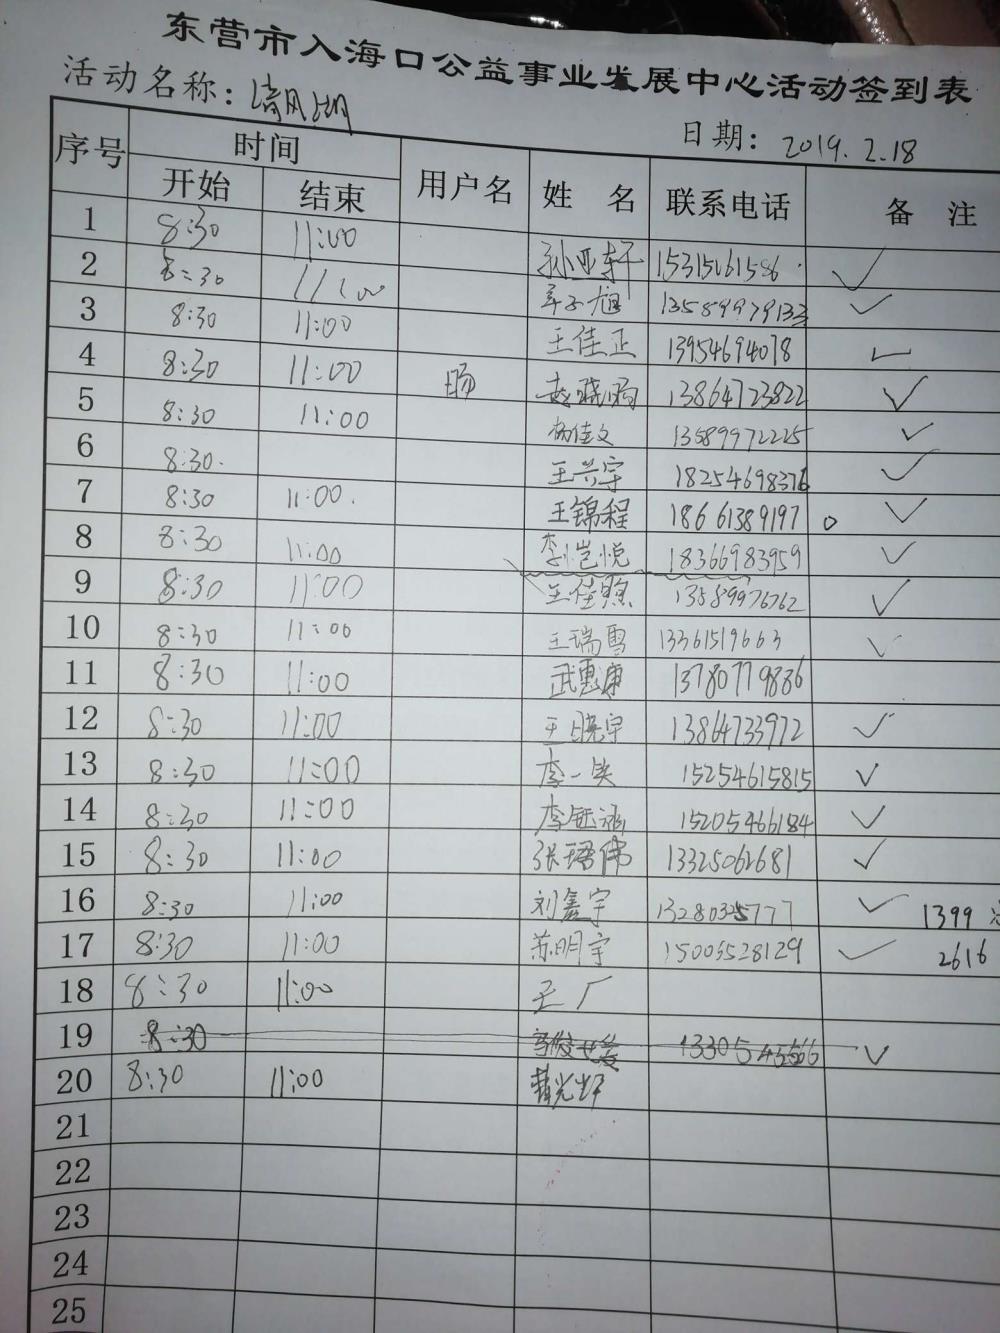 东营市入海口公益事业发展中心活动签到表
活动名称：清风湖
日期：2019.2.18
序号 时间 用户名 姓 名 联系电话 备 注
开始 结束
1 8:30 11:00 孙亚轩 15315061586
2 8:30 11:00 子旭 1358997913
3 8:30 11:00 王佳正 13954694078
4 8:30 11:00 旸 赵晓旸 13864723822
5 8:30 11:00 杨佳文 13589972225
6 8:30 王兴宇 18254698376
7 8:30 11:00 王锦程 18661389197
8 8:30 11:00 李恺悦 18366983959
9 8:30 11:00 王佳煦 13589976762
10 8:30 11:00 王瑞雪 13361519663
11 8:30 11:00 武惠康 13780779836
12 8:30 11:00 王晓宇 13864733972
13 8:30 11:00 李一笑 15254615815
14 8:30 11:00 李钰涵 15205466184
15 8:30 11:00 张珺伟 13325062681
16 8:30 11:00 刘鑫宇 13280325777 1399
17 8:30 11:00 苏明宇 15003528129 2616
18 8:30 11:00 王厂
19 8:30 13305455566
20 8:30 11:00
21
22
23
24
25